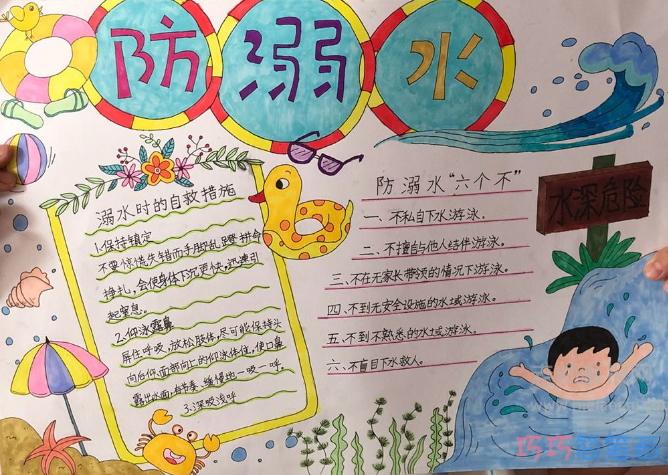 防溺水
溺水时的自救措施
1.保持镇定
不要惊慌失措而手脚乱蹬拼命
挣扎,会使身体下沉更快,还连引
起窒息。
2.仰泳露鼻
屏住呼吸,放松肢体,尽可能保持头
向后仰、面部向上的仰泳体位,使口鼻
露出水面,有节奏、缓慢地一吸一呼。
3.深吸浅呼
防溺水“六个不”
一、不私自下水游泳。
二、不擅自与他人结伴游泳。
三、不在无家长带领的情况下游泳。
四、不到无安全设施的水域游泳。
五、不到不熟悉的水域游泳。
六、不盲目下水救人。
水深危险
巧巧简笔画